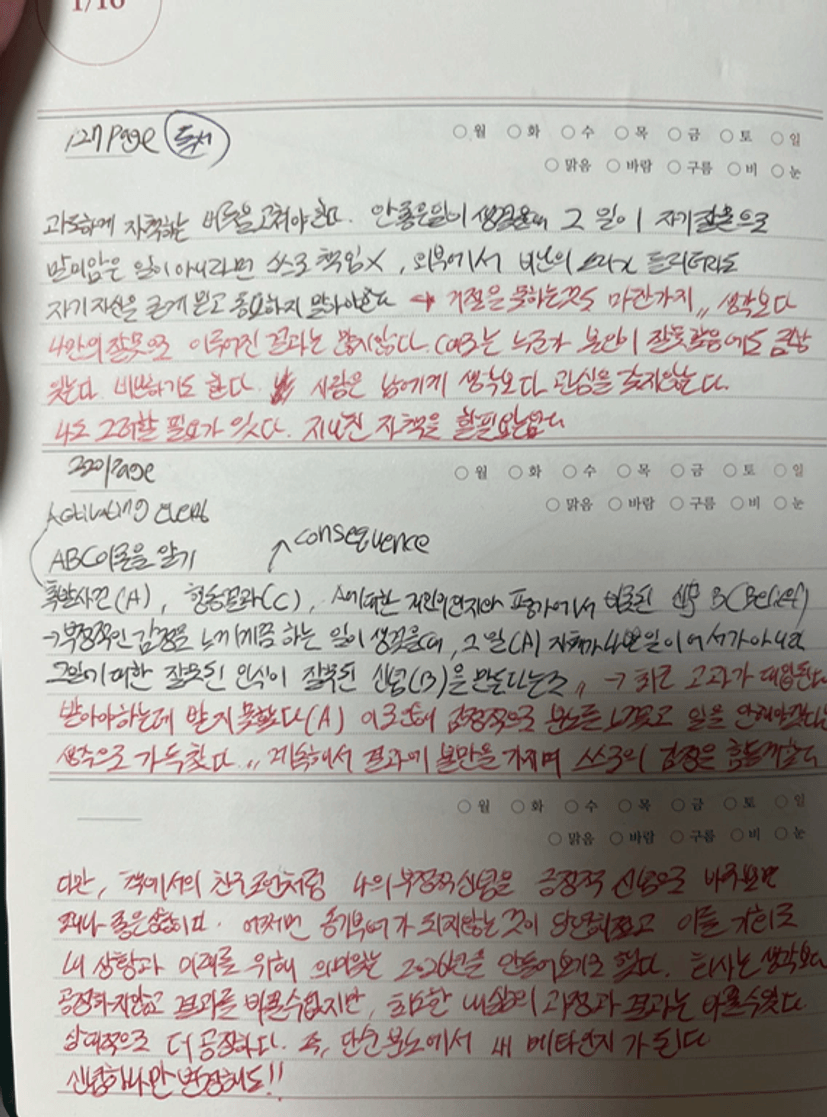 1/16
127 Page 독서
월 화 수 목 금 토 일
맑음 바람 구름 비 눈
과도하게 자책하는 버릇을 고쳐야한다. 안좋은일이 생겼을때 그 일이 자기잘못으로
말미암은 일이아니라면 스스로 책임X, 외부에서 비난의 드려도
자기자신을 크게 보고 동요하지 말아야한다 → 거절을 못하는것도 마찬가지,, 생각보다
나만의 잘못으로 이루어진 결과는 많지않다. 때로는 누군가 본인이 잘못했음에도
있는다. 하기도 한다. 사람은 남에게 생각보다 관심을 갖지않는다.
나도 그러할 필요가 있다. 지나친 자책은 할필요는없다
220Page
월 화 수 목 금 토 일
맑음 바람 구름 비 눈
Activating event
ABC이론을 알기 ↑ consequence
촉발사건(A), 행동결과(C), A에대한 개인의인지와 평가에서 비롯된 신념 B(Belief)
→ 부정적인 감정을 느끼게끔 하는 일이 생겼을때, 그 일(A) 자체가 나쁜일이어서가아니라
그일에 대한 잘못된 인식이 잘못된 신념(B)을 만든다는것,, → 최근 고과가 대입된다
받아야하는데 받지 못했다(A) 이로인해 감정적으로 분노를 느꼈고 일을 안해야겠다는
생각으로 가득찼다.,, 계속해서 결과에 불만을 가지며 스스로의 감정을 힘들게했다
월 화 수 목 금 토 일
맑음 바람 구름 비 눈
다만, 책에서의 조언처럼 나의 부정적신념을 긍정적 신념으로 바꿔보면
꽤나 좋은상황이다. 어쩌면 동기부여가 되지않는 것이 당연해졌고 이를 기회로
내 상황과 미래를 위해 의미있는 2026년을 만들어보기로 했다. 회사는 생각보다
공정하지않고 결과를 바꿀수없지만, 내삶의 과정과 결과는 바꿀수있다
상대적으로 더 공정하다. 즉, 단순분노에서 내 메타인지가 된다
신념하나만 변경해도!!